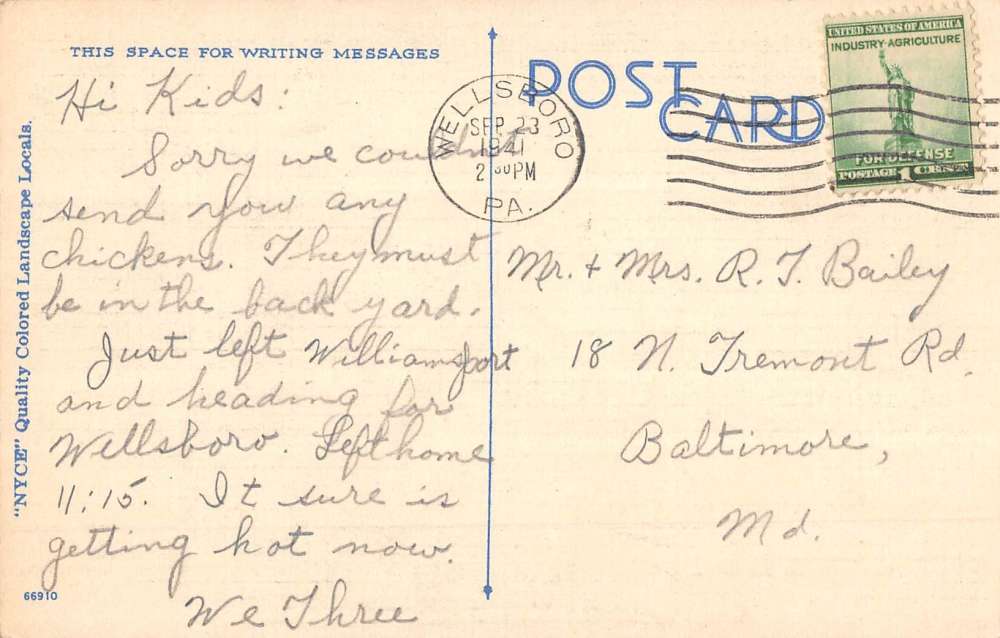 THIS SPACE FOR WRITING MESSAGES
Hi Kids:
Sorry we couldn't
send you any
chickens. They must
be in the back yard.
Just left Williamsport
and heading for
Wellsboro. Left home
11:15. It sure is
getting hot now.
We Three
"NYCE" Quality Colored Landscape Locals.
66910
POST
CARD
WELLSBORO
SEP 23
1941
2 30 PM
PA.
UNITED STATES OF AMERICA
INDUSTRY-AGRICULTURE
FOR DEFENSE
POSTAGE 1 CENT
Mr. + Mrs. R. T. Bailey
18 N. Tremont Rd.
Baltimore,
Md.